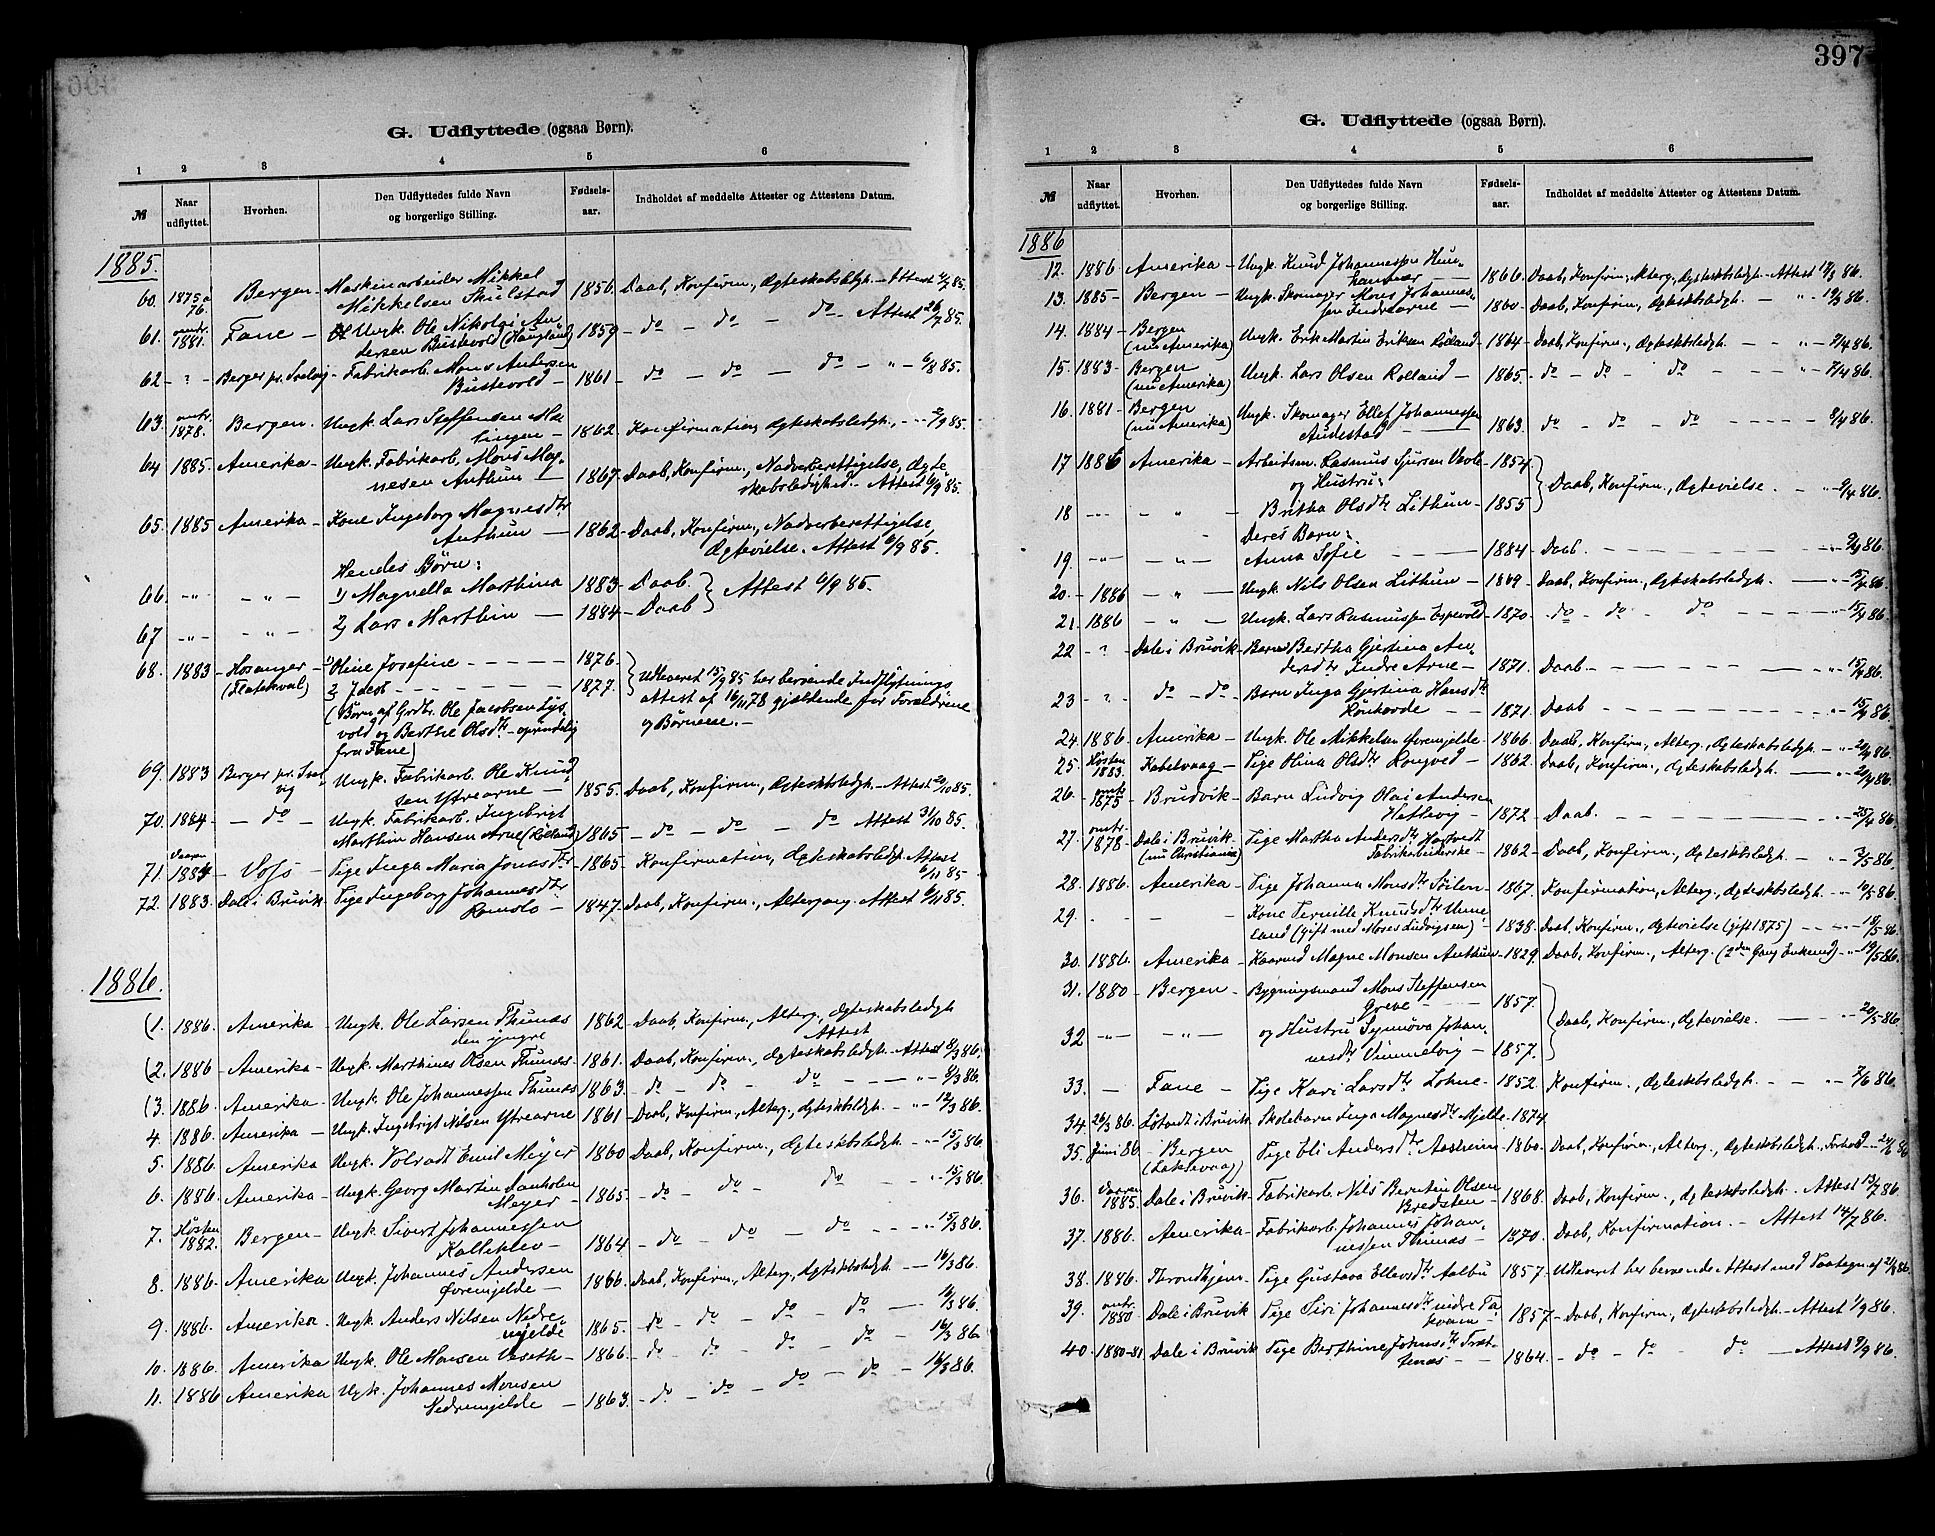 G. Udflyttede (ogsaa Børn).
1 2 3 4 5 6
№ Naar udflyttet. Hvorhen. Den Udflyttedes fulde Navn og borgerlige Stilling. Fødsels-aar. Indholdet af meddelte Attester og Attestens Datum.
1885.
60. 1875 a 76. Bergen - Maskinarbeider Mikkel
Mikkelsen Skulstad 1856. Daab, Konfirm., Ægteskabsledgh. - Attest 85.
61. omtr. 1881. Fane - Ungk. Ole Nikolai An
dersen Bustevold (Haugland) 1859 - do - do - do - Attest 26/7 85.
62 - ? - Berger pr. Svelvig - Fabrikarb. Mons Andersen
Bustevold - 1861 - do - do - do - " - 6/8 85.
63. omtr. 1878. Bergen. Ungk. Lars Steffensen Ma
lingen - 1862 Konfirmation, Ægteskabsledgh., - - 2/9 85.
64 1885. Amerika - Ungk. Fabrikarb. Mons Mag-
nesen Arthun - 1867. Daab, Konfirm., Nadverberettigelse, Ægte
skabsledighed. - Attest 6/9 85.
65. 1885 Amerika - Kone Ingeborg Magnesdtr
Arthun - 1862 - Daab, Konfirm., Nadverberettigelse,
Ægtevielse. Attest 6/9 85.
Hendes Børn:
66. -"- - " - 1) Magnella Marthina 1883 - Daab. } Attest 6/9 85.
67 -"- - " - 2) Lars Marthin - 1884 - Daab
68. 1883 - Hosanger - 1) Oline Josefine - - - - - 1876.
(Flatekval) 2) Jakob - - - - - - - 1877. } Udleveret 15/9 85 her beroende Indflytnings
(Børn af Grdbr. Ole Jacobsen Lys- attest af 16/11 78 gjældende for Forældrene
vold og Berthe Olsdtr. - oprindelig og Børnene. -
fra Fane)
69. 1883 Berger pr. Svel
vig Ungk. Fabrikarb. Ole Knud
sen Ytrearne - 1855. Daab, Konfirm., Ægteskbsledgh. - Attest 20/10 85.
70. 1884 - do - Ungk. Fabrikarb. Ingebrigt
Marthin Hansen Arne (Rolland) 1865 - do - do - do Attest 31/10 85.
71. Vaaren 1884 - Voss - Pige Inga Maria Jonasdtr 1865. Konfirmation, Ægteskabsledgh. Attest
6/11 85
72. 1883. Dale i Bruvik Pige Ingeborg Johannesdtr
Romslo - 1847. Daab, Konfirm., Altergang. Attest 6/11 85.
1886.
(1. 1886. Amerika - Ungk. Ole Larsen Thunæs 1862 Daab, Konfirm., Alterg., Ægteskabsledgh
den yngre Attest
(2. 1886 - Amerika - Ungk. Marthines Olsen Thunæs - 1861. Daab, Konfirm., Ægteskabsledgh. - Attest 8/3 86.
(3. 1886. Amerika - Ungk. Ole Johannessen Thunæs 1863. do - do - do - - - " - 8/3 86.
4. 1886. Amerika - Ungk. Ingebrigt Nilsen Ytrearne 1861 - Daab, Konfirm., Alterg., Ægteskbsledgh. - " - 12/3 86.
5. 1886. Amerika Ungk. Volradt Emil Meyer 1860 Daab, Konfirm., Ægteskbsledgh. - - " - 15/3 86
6. 1886. Amerika - Ungk. Georg Martin Danholm
Meyer - 1865 - do - do - do - - " - 15/3 86.
7. Høsten 1882. Bergen - Ungk. Sivert Johannessen
Kalleklev - 1864 - do - do - do - - - " 15/3 86.
8. 1886. Amerika Ungk. Johannes Andersen
Øvremjelde - 1866 Daab, Konfirm., Alterg., Ægteskbsledgh. - - 16/3 86.
9. 1886. Amerika. Ungk. Anders Nilsen Nedre-
mjelde 1865. - do - do - do - do - - 16/3 86.
10. 1886. Amerika Ungk. Ole Monsen Veseth - 1866. do - do - do - do - 16/3 86
11. 1886 Amerika Ugk. Johannes Monsen
Nedremjelde - 1863. - do - do - do - do - 16/3 86.
397
G. Udflyttede (ogsaa Børn).
1 2 3 4 5 6
№ Naar udflyttet. Hvorhen. Den Udflyttedes fulde Navn og borgerlige Stilling. Fødsels-aar. Indholdet af meddelte Attester og Attestens Datum.
1886
12. 1886 Amerika - Ungk. Knud Johannessen Hun-
hammer - 1866. Daab, Konfirm., Alterg., Ægteskbsledgh. - Attest 86.
13. 1885 - Bergen - Ungk. Skomager Mons Johannes-
sen Indrearne - 1860 - Daab, Konfirm., Ægteskbsledgh. - " 86.
14. 1884 - Bergen
(nu Amerika) Ungk. Erik Martin Eriksen Rolland - 1864 - Daab, Konfirm., Ægteskbsledgh. - - " - 7/4 86.
15. 1883 - Bergen
(nu Amerika) Ungk. Lars Olsen Rolland - 1865. - do - do - do - - " - 7/4 86.
16. 1881 - Bergen
(nu Amerika) Ungk. Skomager Ellef Johannessen
Andestad - 1863. do - do - do - - - - 8/4 86.
17 1886 Amerika - Arbeidsm. Rasmus Sjursen Vaule - 1854.
og Hustru: } Daab, Konfirm., Ægtevielse. - - " - 9/4 86.
18 -"- " - Britha Olsdtr Lithun - 1855
Deres Barn:
19. -"- - " - Anna Sofie - - - - 1884 - Daab. - - - - - " 9/4 86.
20. - 1886 - " - Ungk. Nils Olsen Lithun - 1869 - Daab, Konfirm., Ægteskbsledgh. - - " 15/4 86.
21. 1886 - " - Ungk. Lars Rasmussen Espevold - 1870. - do - do - do - - - " 15/4 86.
22 - ? - Dale i Bruvik - Barnet Bertha Gjertina An-
dersdtr Indre Arne - 1871. Daab. - - - - - " - 15/4 86.
23 - ? - do - do - Barn Inga Gjertina Hansdtr
Rønhovde - - 1871. Daab - - - - - " 15/4 86.
24. 1886. Amerika - Ungk. Ole Mikkelsen Øvremjelde - 1866 Daab, Konfirm., Alterg., Ægteskabsledgh. - " - 20/4 86.
25. Høsten 1883. Kabelvaag - Pige Olina Olsdtr Rongved - 1862. Daab, Konfirm., Ægteskabsledgh. - " - 21/4 86.
26. - omtr. 1875 Brudvik - Barn Ludvig Olai Andersen
Hatlevig - 1872 Daab. - - - - - 25/4 86.
27. omtr. 1878 - Dale i Bruvik -
(nu Christiania) Pige Martha Andersdtr Hartvedt
Fabrikarbeiderske - 1862 - Daab, Konfirm., Ægteskbsledgh. - " - 3/5 86.
28. 1886. Amerika - Pige Johanna Monsdtr Seilen - 1867. Konfirmation, Alterg., Ægteskbsledgh. - " - 10/5 86.
29. - - - Kone Pernille Knudsdtr Unne
land (gift med Moses Ludvigsen) - 1838. Daab, Konfirm., Ægtevielse (gift 1875) - - - - 18/5 86.
30. 1886. Amerika - Kaarmd Magne Monsen Arthun - 1829. Daab, Konfirm., Alterg. (2den Gang Enkemd) - " - 19/5 86.
31. 1880 - Bergen - Bygningsmand Mons Steffensen
Greve - - - 1857.
32 -"- " - og Hustru Synnøva Johan- } Daab, Konfirm., Ægtevielse. - - - 20/5 86.
nesdtr Vimmelvig - 1857.
33. - Fane - Pige Kari Larsdtr Lohne - 1852. Konfirm., Ægteskbsledgh. - - " - 2/6 86.
34. 26/3 86. i Bruvik Skolebarn Inga Magnesdtr Mjelde - 1874.
35. Juni 86. - Bergen
(Laksevaag) Pige Eli Andersdtr Aasheim - 1860. Daab, Konfirm., Alterg., Ægteskbsledgh., Forhold - 24/6 86
36. Vaaren 1885. Dale i Bruvik - Fabrikarb. Nils Berntin Olsen
Bredsten - 1868. Daab, Konfirm., Ægteskbsledgh. Attest 13/7 86.
37. 1886. Amerika - Fabrikarb. Johannes Johan-
nessen Thunæs - 1870. Daab, Konfirmation. - Attest 14/7 86.
38. 1886. Throndhjem - Pige Gustava Ellevsdtr Aalbu 1857 - Udleveret her beroende Attest med Paategn. af 86.
39. omtr. 1880 Dale i Bruvik Pige Siri Johannesdtr indre Ta
kvam - 1857 - Daab, Konfirm., Ægteskabsledgh. - Attest 1/9 86.
40. 1880-81 Dale i Bruvik Pige Berthine Johnsdtr Træt
tenæs - - 1864. - do - do - do - Attest 9/9 86.